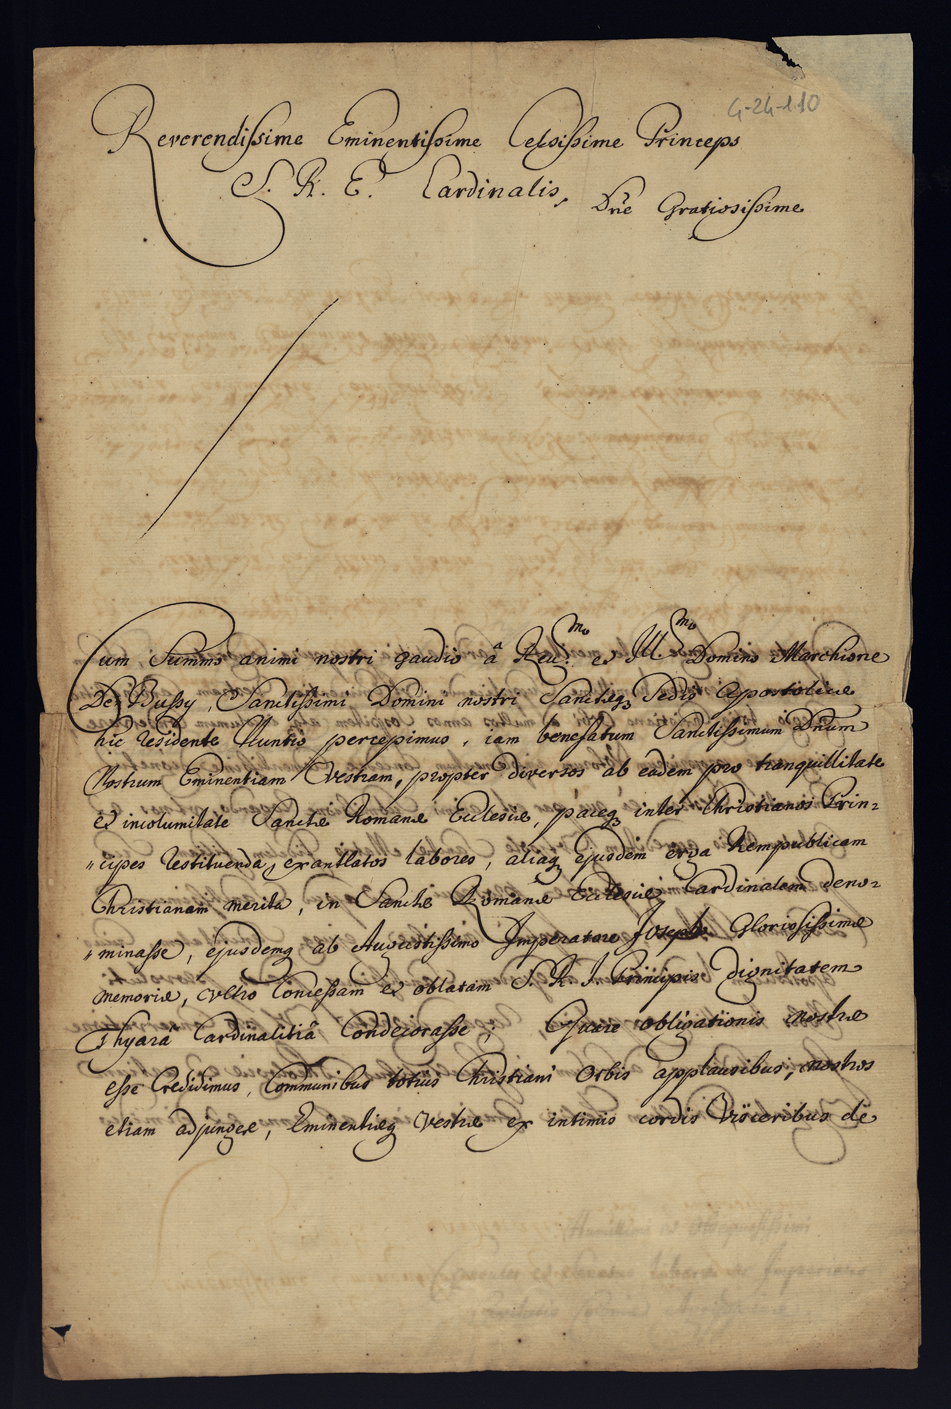 4-24-110
Reverendissime Eminentissime Celsissime Princeps
S. R. E. Cardinalis, Dn̄e Gratiosissime
Cum summo animi nostri gaudio â Reu.mo et Ill.mo Domino Marchione
De Bussy, Sanctissimi Domini nostri Sanctæq3 Sedis Apostolicæ
hic residente Nuntio percepimus, iam benefatum Sanctissimum Dn̄um
Nostrum Eminentiam Vestram, propter diversos ab eadem pro tranquillitate
et incolumitate Sanctæ Romanæ Ecclesiæ, paceq3 inter Christianos Prin=
"cipes restituenda, exantlatos labores, aliaq3 ejusdem erga Rempublicam
Christianam merita, in Sanctæ Romanæ Ecclesiæ Cardinalem deno=
"minasse, ejusdemq3 ab Augustissimo Imperatore Josepho Gloriosissimæ
memoriæ, vltro Concessam et oblatam S. R. I. Principis dignitatem
Thyarâ Cardinalitiâ Condecorasse; Quare obligationis nostræ
esse Credidimus, Communibus totius Christiani Orbis applausibus, nostros
etiam adjungere, Eminentiæq3 Vestræ ex intimis cordis Visceribus de